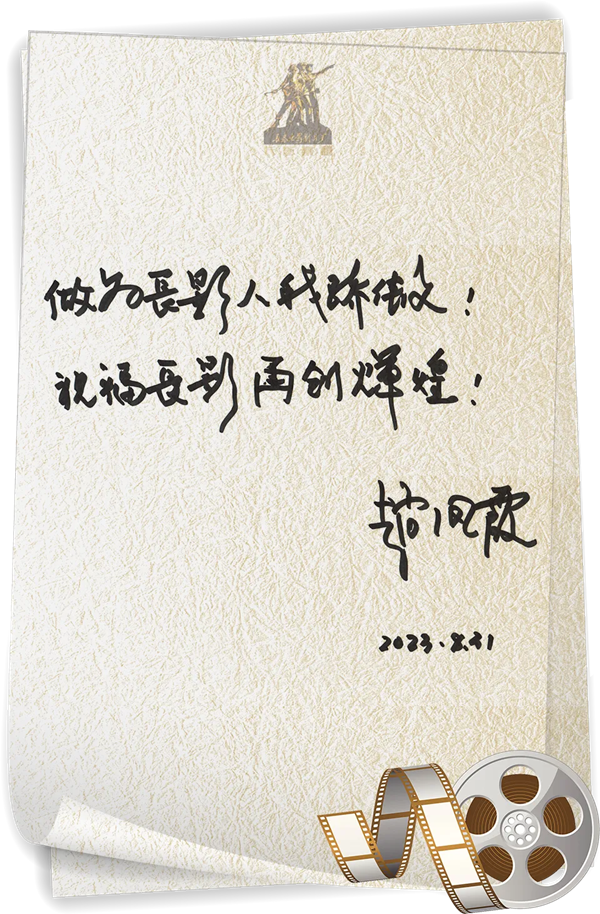 做为長影人我骄傲！
祝福長影再创辉煌！
趙凤霞
2023.8.31